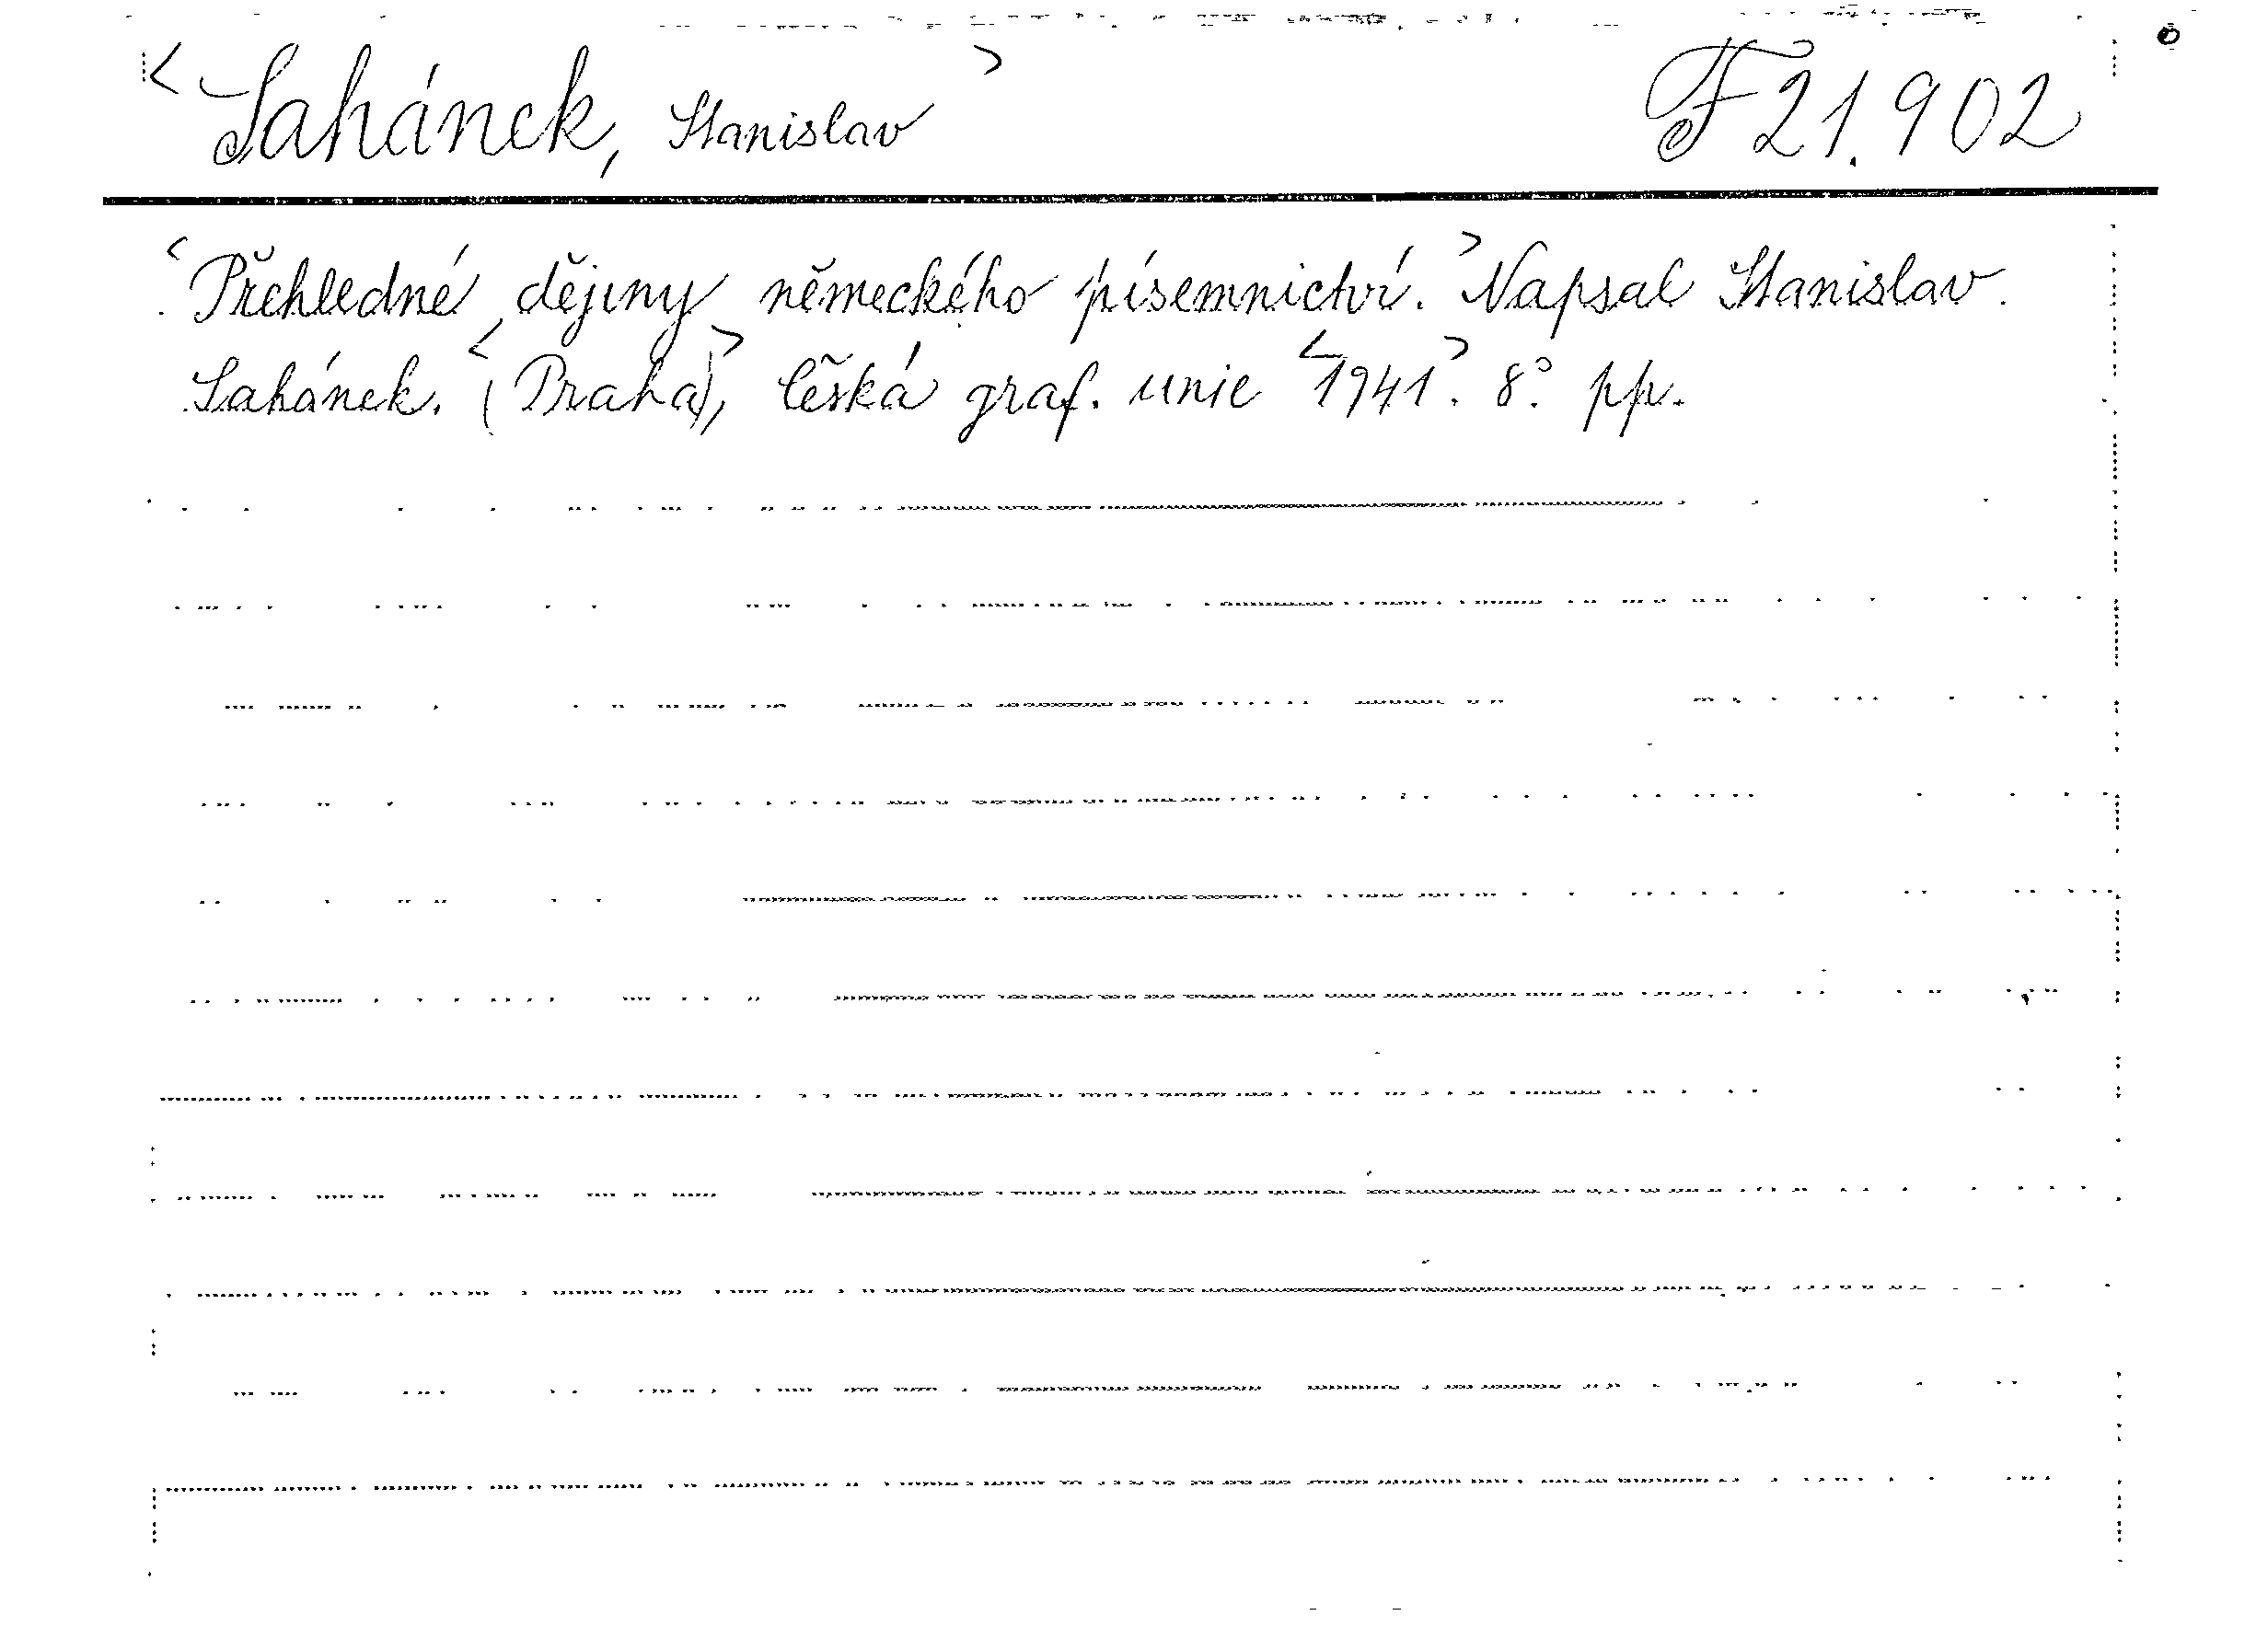 <Sahánek, Stanislav> F 21.902
<Přehledné dějiny německého písemnictví.> Napsal Stanislav
Sahánek. <(Praha)>, Česká graf. unie <1941>. 8° pp.